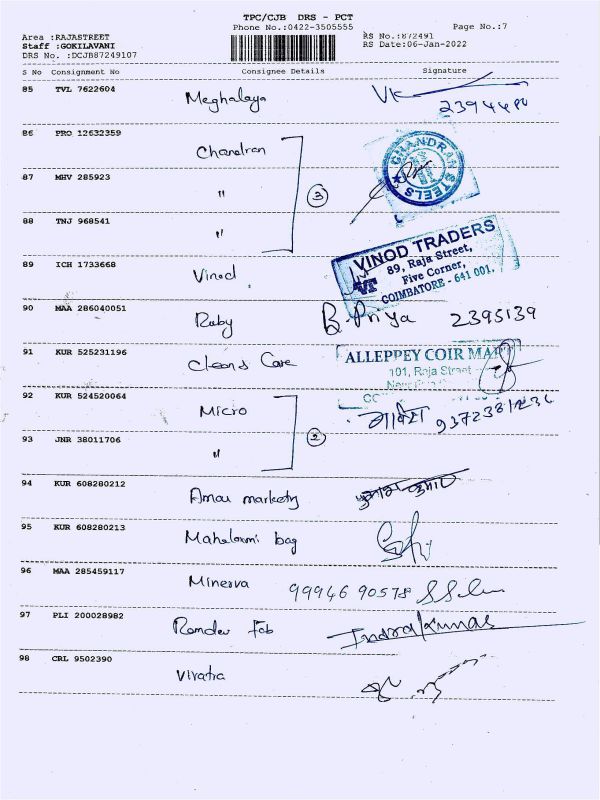 TPC/CJB DRS - PCT
Phone No.:0422-3505555 Page No.:7
Area :RAJASTREET RS No.:872491
Staff :GOKILAVANI RS Date:06-Jan-2022
DRS No. :DCJB87249107
S No Consignment No Consignee Details Signature
85 TVL 7622604 Meghalaya
86 PRO 12632359 Chandran CHANDRAN STEELS
87 MHV 285923 " 3
88 TNJ 968541 "
89 ICH 1733668 Vinod VINOD TRADERS
89, Raja Street,
Five Corner,
COIMBATORE - 641 001.
90 MAA 286040051 Ruby B. Priya 2395139
91 KUR 525231196 Cleand Care ALLEPPEY COIR MART
101, Raja Street
92 KUR 524520064 Micro
93 JNR 38011706 " 2
94 KUR 608280212 Amar marketing
95 KUR 608280213 Mahalaxmi bag
96 MAA 285459117 Minerva 99946 90578
97 PLI 200028982 Ramdev Fab Indrakumar
98 CRL 9502390 Viratra